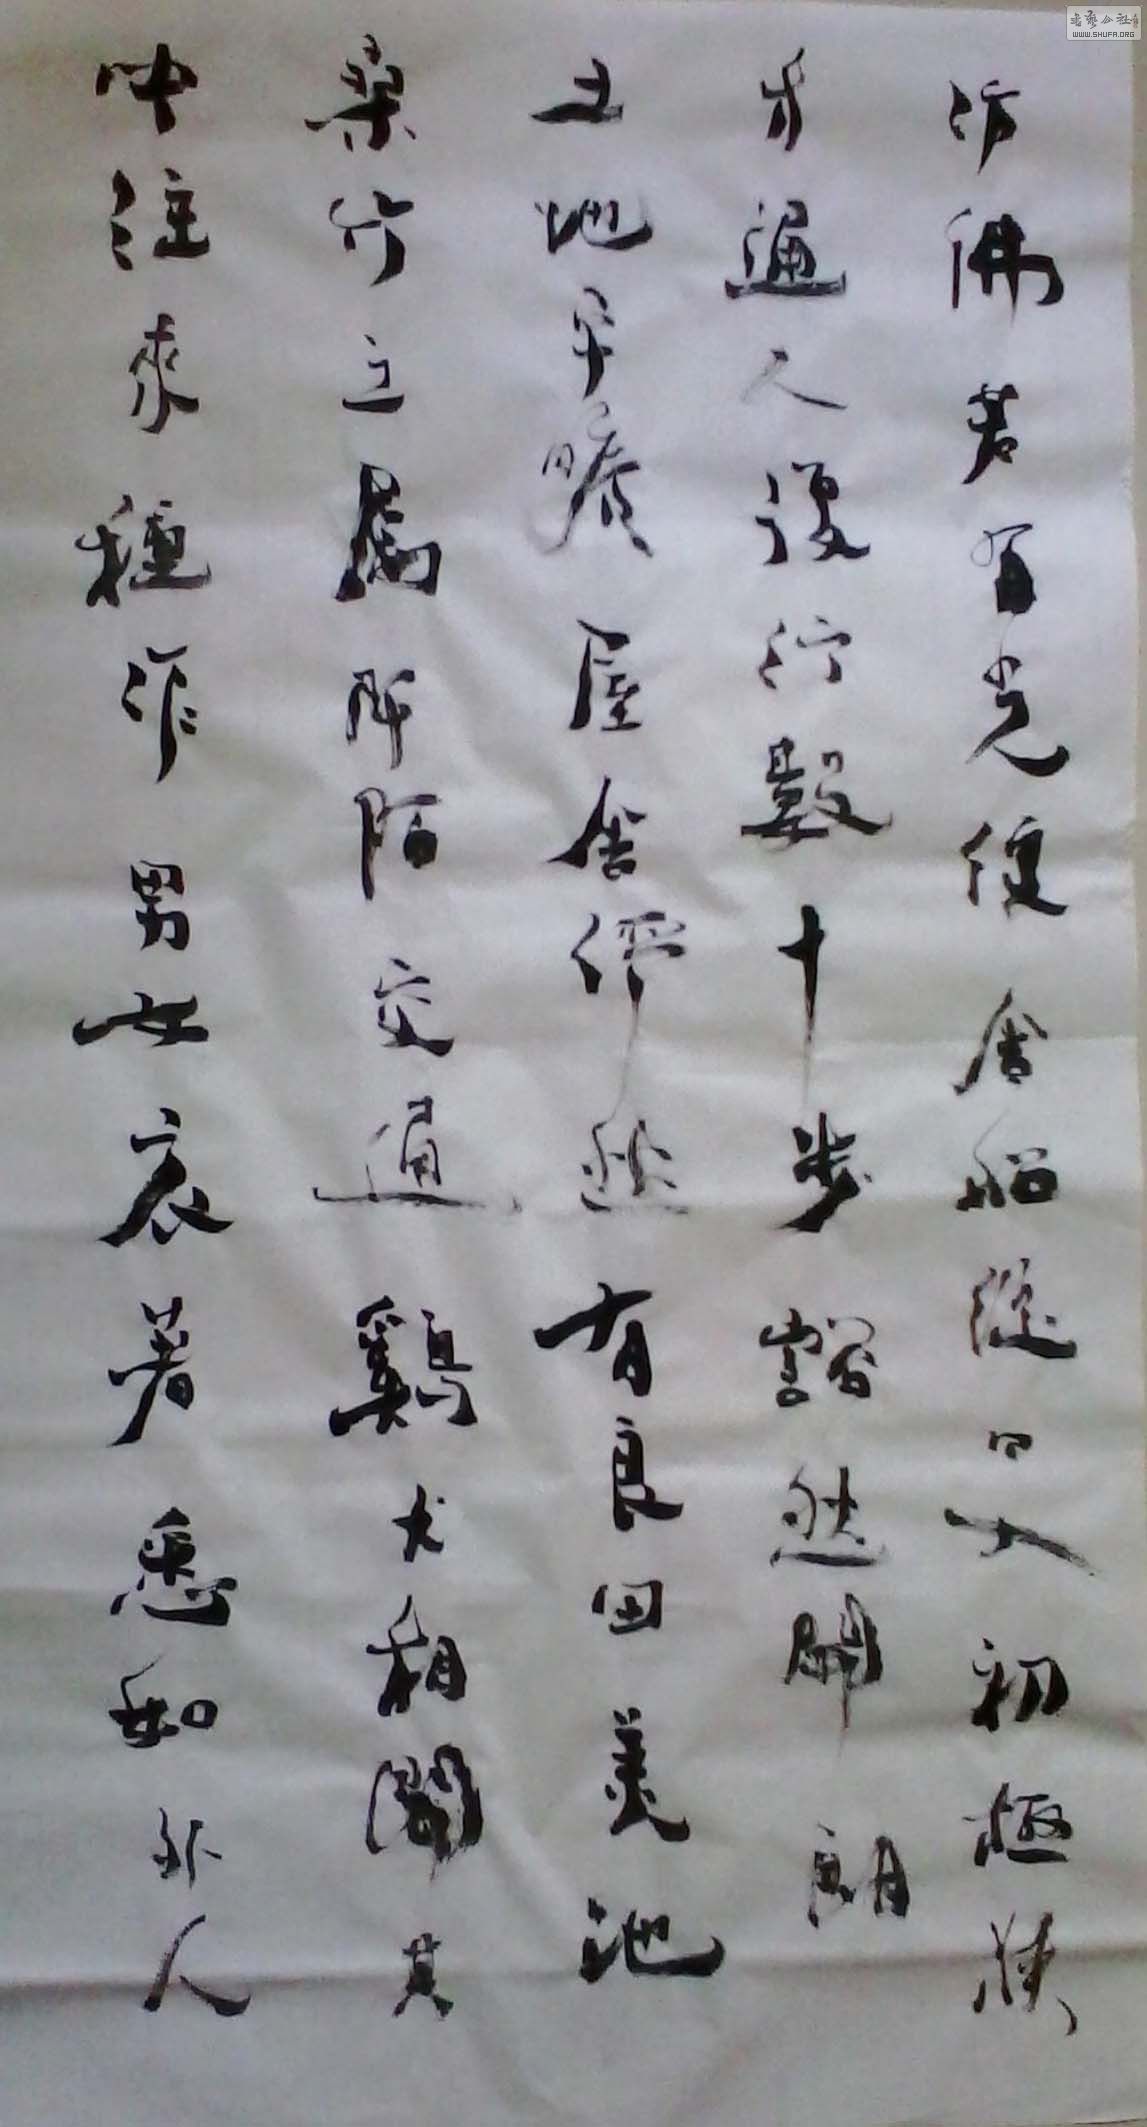 仿佛若有光便舍船從口入初極狹
才通人復行數十步豁然開朗
土地平曠屋舍儼然有良田美池
桑竹之屬阡陌交通鷄犬相聞其
中往來種作男女衣著悉如外人
WWW.SHUFA.ORG